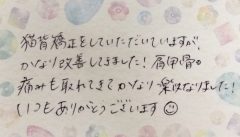 猫背矯正をしていただいていますが、
かなり改善してきました!肩甲骨の
痛みも取れてきてかなり楽になりました!
いつもありがとうございます☺